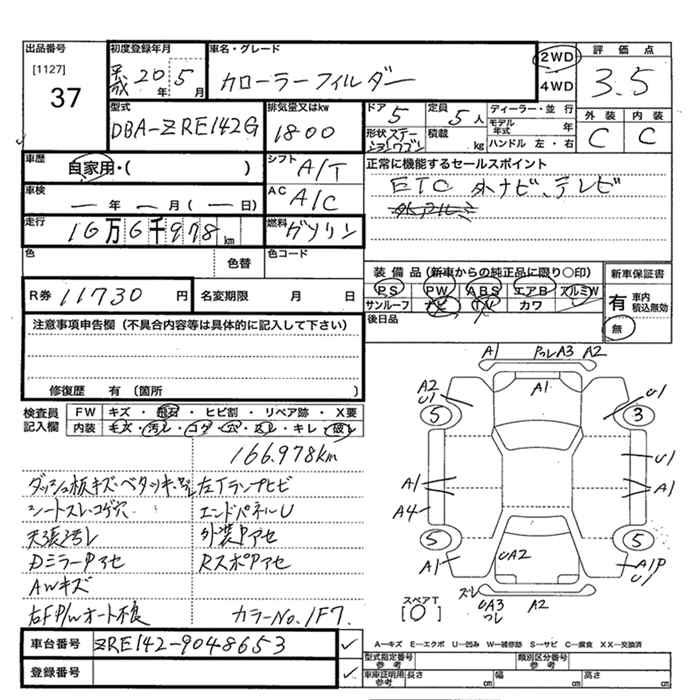 出品番号
[1127]
37
初度登録年月
平成 20年 5月
車名・グレード
カローラーフィルダー
2WD
4WD
評価点
3.5
外装 内装
C C
型式
DBA-ZRE142G
排気量又はkw
1800
ドア 5
定員 5人
形状 ステーションワゴン
積載 kg
ディーラー・並行
モデル年式 年
ハンドル 左・右
車歴
自家用・( )
シフト A/T
正常に機能するセールスポイント
ETC 外ナビ、テレビ
車検
— 年 — 月 ( — 日)
AC A/C
走行
16万6千978km
燃料 ガソリン
色
色替
色コード
R券 11730 円
名変期限 月 日
装備品(新車からの純正品に限り○印)
PS PW ABS エアB アルミW
サンルーフ ナビ TV カワ
後日品
新車保証書
有 車内積込無効
無
注意事項申告欄(不具合内容等は具体的に記入して下さい)
修復歴 有 (箇所 )
検査員記入欄
FW キズ・飛石・ヒビ割・リペア跡・X要
内装 キズ・汚レ・コゲ・穴・スレ・キレ・破レ
166.978km
ダッシュ板キズ・ベタツキ・ 左Tランプヒビ
シートスレ・コゲ穴 エンドパネルU
天張汚レ 外装Pアセ
DミラーPアセ RスポPアセ
AWキズ
右FP/Wオート不良 カラーNo.1F7.
A1 A3 A2
A1
A2
U1
5
U1
3
U1
A1
A1
A4
5
A1
UA2
5
A1P
U1
スレ
UA3
A2
スペアT
[O]
車台番号 ZRE142-9048653
登録番号
A―キズ E―エクボ U―凹み W―補修跡 S―サビ C―腐食 XX―交換済
型式指定番号 参考
類別区分番号 参考
車庫証明用 参考 長さ cm 幅 cm 高さ cm